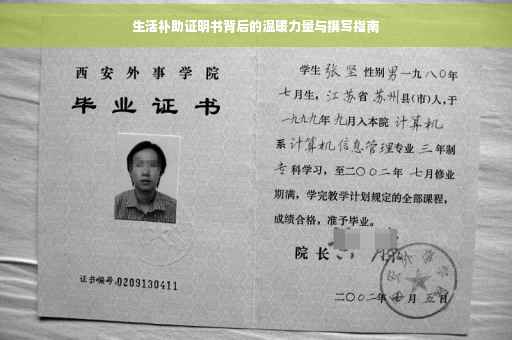 生活补助证明书背后的温暖力量与撰写指南
西安外事学院
毕业证书
证书编号:0209130411
学生 张坚 性别 男 一九八〇年
七月生, 江苏省 苏州县(市)人, 于
一九九九年 九月入本院 计算机
系 计算机信息管理专业 三 年制
专科学习, 至二〇〇二年 七月修业
期满, 学完教学计划规定的全部课程,
成绩合格, 准予毕业。
院长
二〇〇二年 月 五日